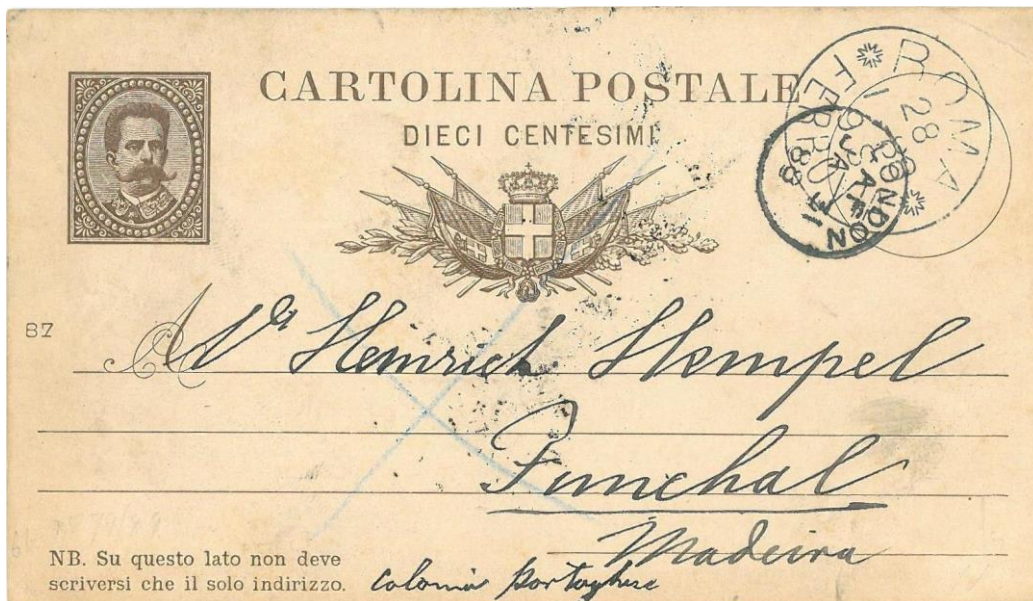 CARTOLINA POSTALE
DIECI CENTESIMI
ROMA
28
FERROVIA
88
LONDON
JA 31
88
87
A Heinrich Hempel
Funchal
Madeira
NB. Su questo lato non deve
scriversi che il solo indirizzo.
Colonia Portoghese